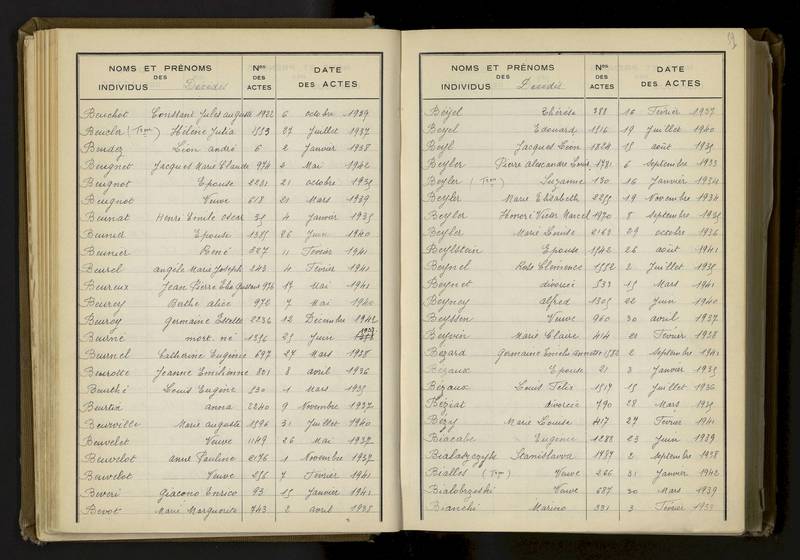 NOMS ET PRÉNOMS DES INDIVIDUS Décédés Nos DES ACTES DATE DES ACTES
Beuchot Constant Jules auguste 1922 6 octobre 1939
Beucler (Tem) Hélène Julia 1553 27 Juillet 1937
Beudez Léon andré 6 2 Janvier 1938
Beugnet Jacques Marie Claude 974 2 Mai 1942
Beugnot Epouse 2201 21 octobre 1935
Beugnot Veuve 618 21 Mars 1939
Beunat Henri Emile oscar 35 4 Janvier 1935
Epouse 1385 26 Juin 1940
Beunier René 327 11 Février 1941
Beurel angèle Marie Joseph 243 4 Février 1941
Beureux Jean Pierre Elie Gustave 976 17 Mai 1941
Beurey Berthe alice 972 7 Mai 1940
Beurey germaine Estelle 2236 12 Décembre 1942
Beurne mort. né 1356 25 Juin 1937
Beurnel Catherine Eugénie 697 27 Mars 1938
Beurotte Jeanne Emilienne 801 8 avril 1936
Beurthé Louis Eugène 530 1 Mars 1935
Beurtin anna 2240 9 Novembre 1937
Beurville Marie auguste 1596 31 Juillet 1940
Beuvelot Veuve 1149 26 Mai 1937
Beuvelot anne Pauline 2176 1 Novembre 1937
Beuvelot Veuve 256 7 Février 1941
Beveri giacomo Enrico 93 15 Janvier 1941
Bevot Marie Marguerite 743 2 avril 1938
NOMS ET PRÉNOMS DES INDIVIDUS Décédés Nos DES ACTES DATE DES ACTES
Beyel Thérèse 388 16 Février 1937
Beyel Edouard 1516 19 Juillet 1940
Beyl Jacques Léon 1824 15 août 1935
Beyler Pierre alexandre Louis 1781 6 Septembre 1933
Beyler (Tem) Suzanne 130 16 Janvier 1934
Beyler Marie Elisabeth 2255 19 Novembre 1934
Beyler Honoré Victor Marcel 1970 8 Septembre 1935
Beyler Marie Louise 2162 29 octobre 1936
Beylstein Epouse 1742 26 août 1941
Beynel Clémence 1552 2 Juillet 1935
Beynet divorcée 533 15 Mars 1941
Beyney alfred 1305 22 Juin 1940
Veuve 960 30 avril 1937
Beyvin Marie Claire 414 21 Février 1938
Bézard Germaine Emelie annette 1582 2 Septembre 1941
Bézaux Epouse 21 3 Janvier 1935
Bézaux Louis Félix 1517 15 Juillet 1936
Béziat divorcée 790 28 Mars 1935
Bézy Marie Louise 417 27 Février 1941
Biacabe Eugénie 1288 23 Juin 1939
Stanislawa 1737 2 Septembre 1938
Biallot (Tem) Veuve 226 31 Janvier 1942
Bialobrzeski Veuve 687 30 Mars 1939
Bianchi Marino 331 3 Février 1938